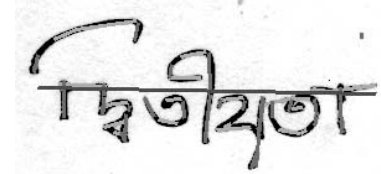 দ্বিতীয়তা